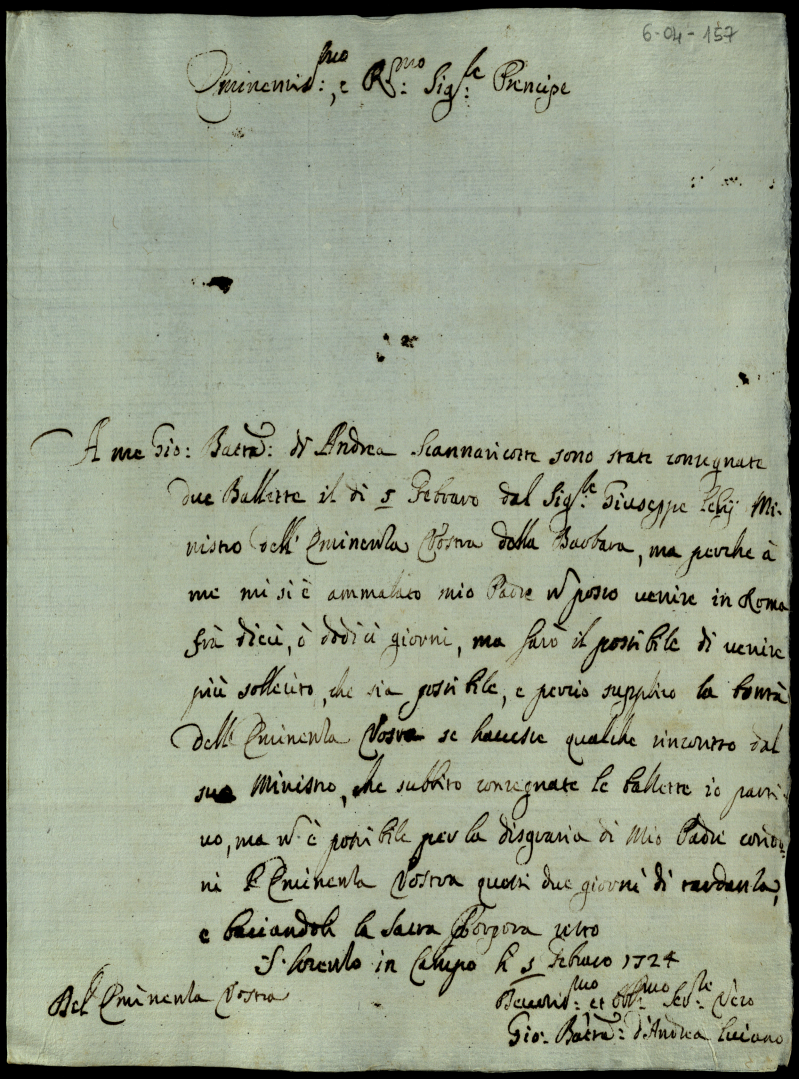 6-04-157
Eminentis:mo, e R:mo Sig:le Prencipe
A me Gio: Batta: di Andrea Scannavicotte sono state consegnate
due Ballette il di 5 Febraro dal Sig:le Giuseppe Mi-
nistro dell' Eminenza Vostra della Barbara, ma perche à
me mi si è ammalato mio Padre n posso venire in Roma
frà dieci, ò dodici giorni, ma farò il possibile di venire
più sollecito, che sia possibile, e perciò supplico la bontà
dell' Eminenza Vostra se havesse qualche rincontro dal
suo Ministro, che subbito consegnate le ballette io parti-
vo, ma n è possibile per la disgrazia di Mio Padre condo-
ni l'Eminenza Vostra questi due giorni di tardanza,
e baciandoli la Sacra Porpora resto
S. Lorenzo in Campo li 5 Febraro 1724
Dell' Eminenza Vostra
et Obb:mo Ser:le Vero
Gio: Batta: d'Andrea Luciano